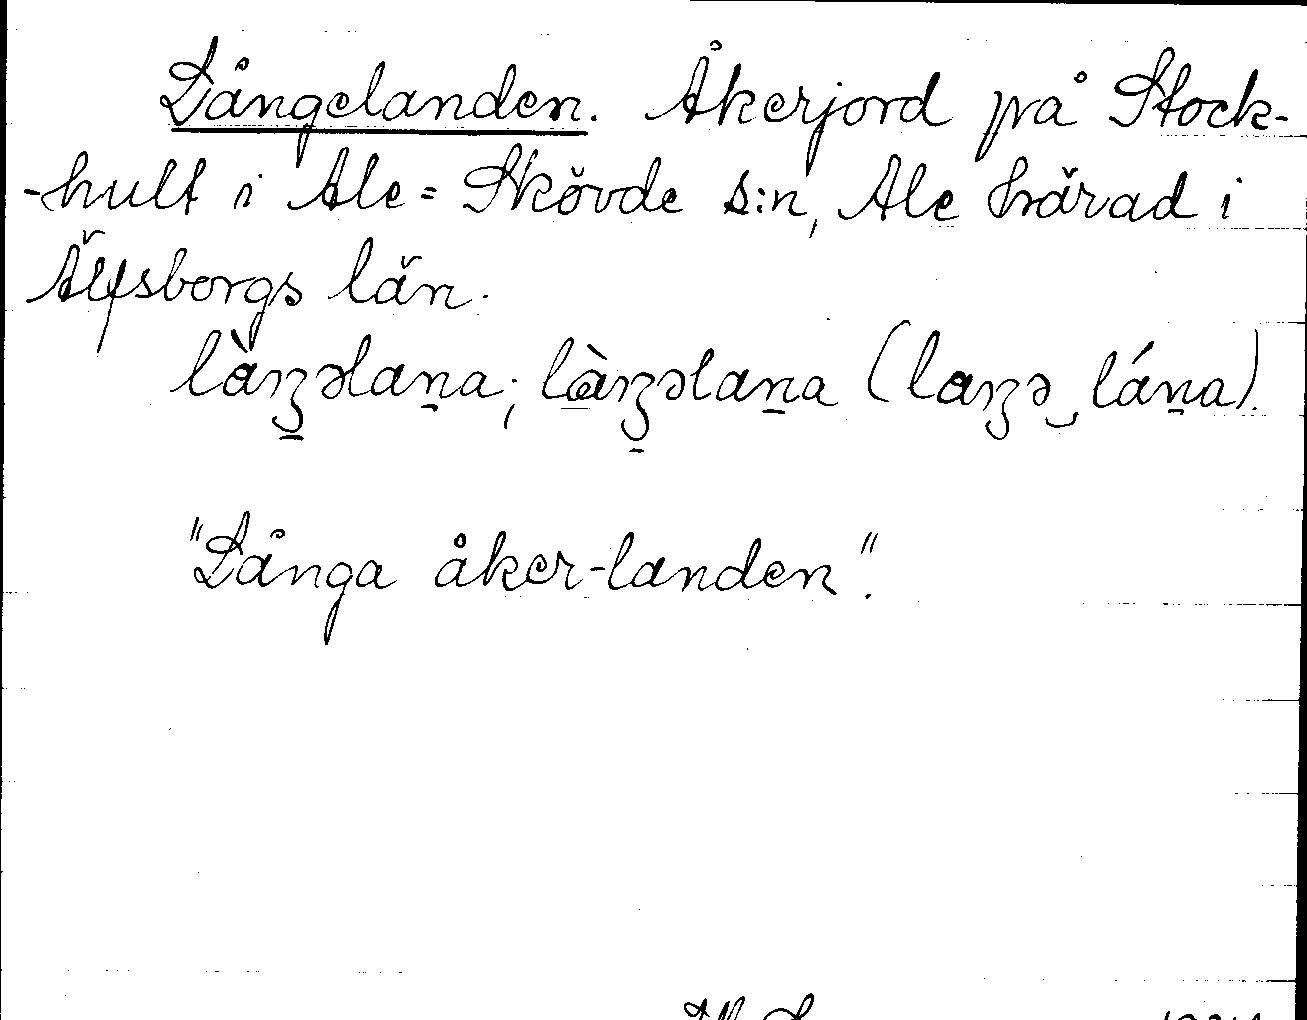 Långelanden. Åkerjord på Stock-
-hult i Ale=Skövde s:n, Ale härad i
Älfsborgs län.
làŋəlaṉa; làŋəlaṉa (laŋə‿láṉa).
"Långa åker-landen".